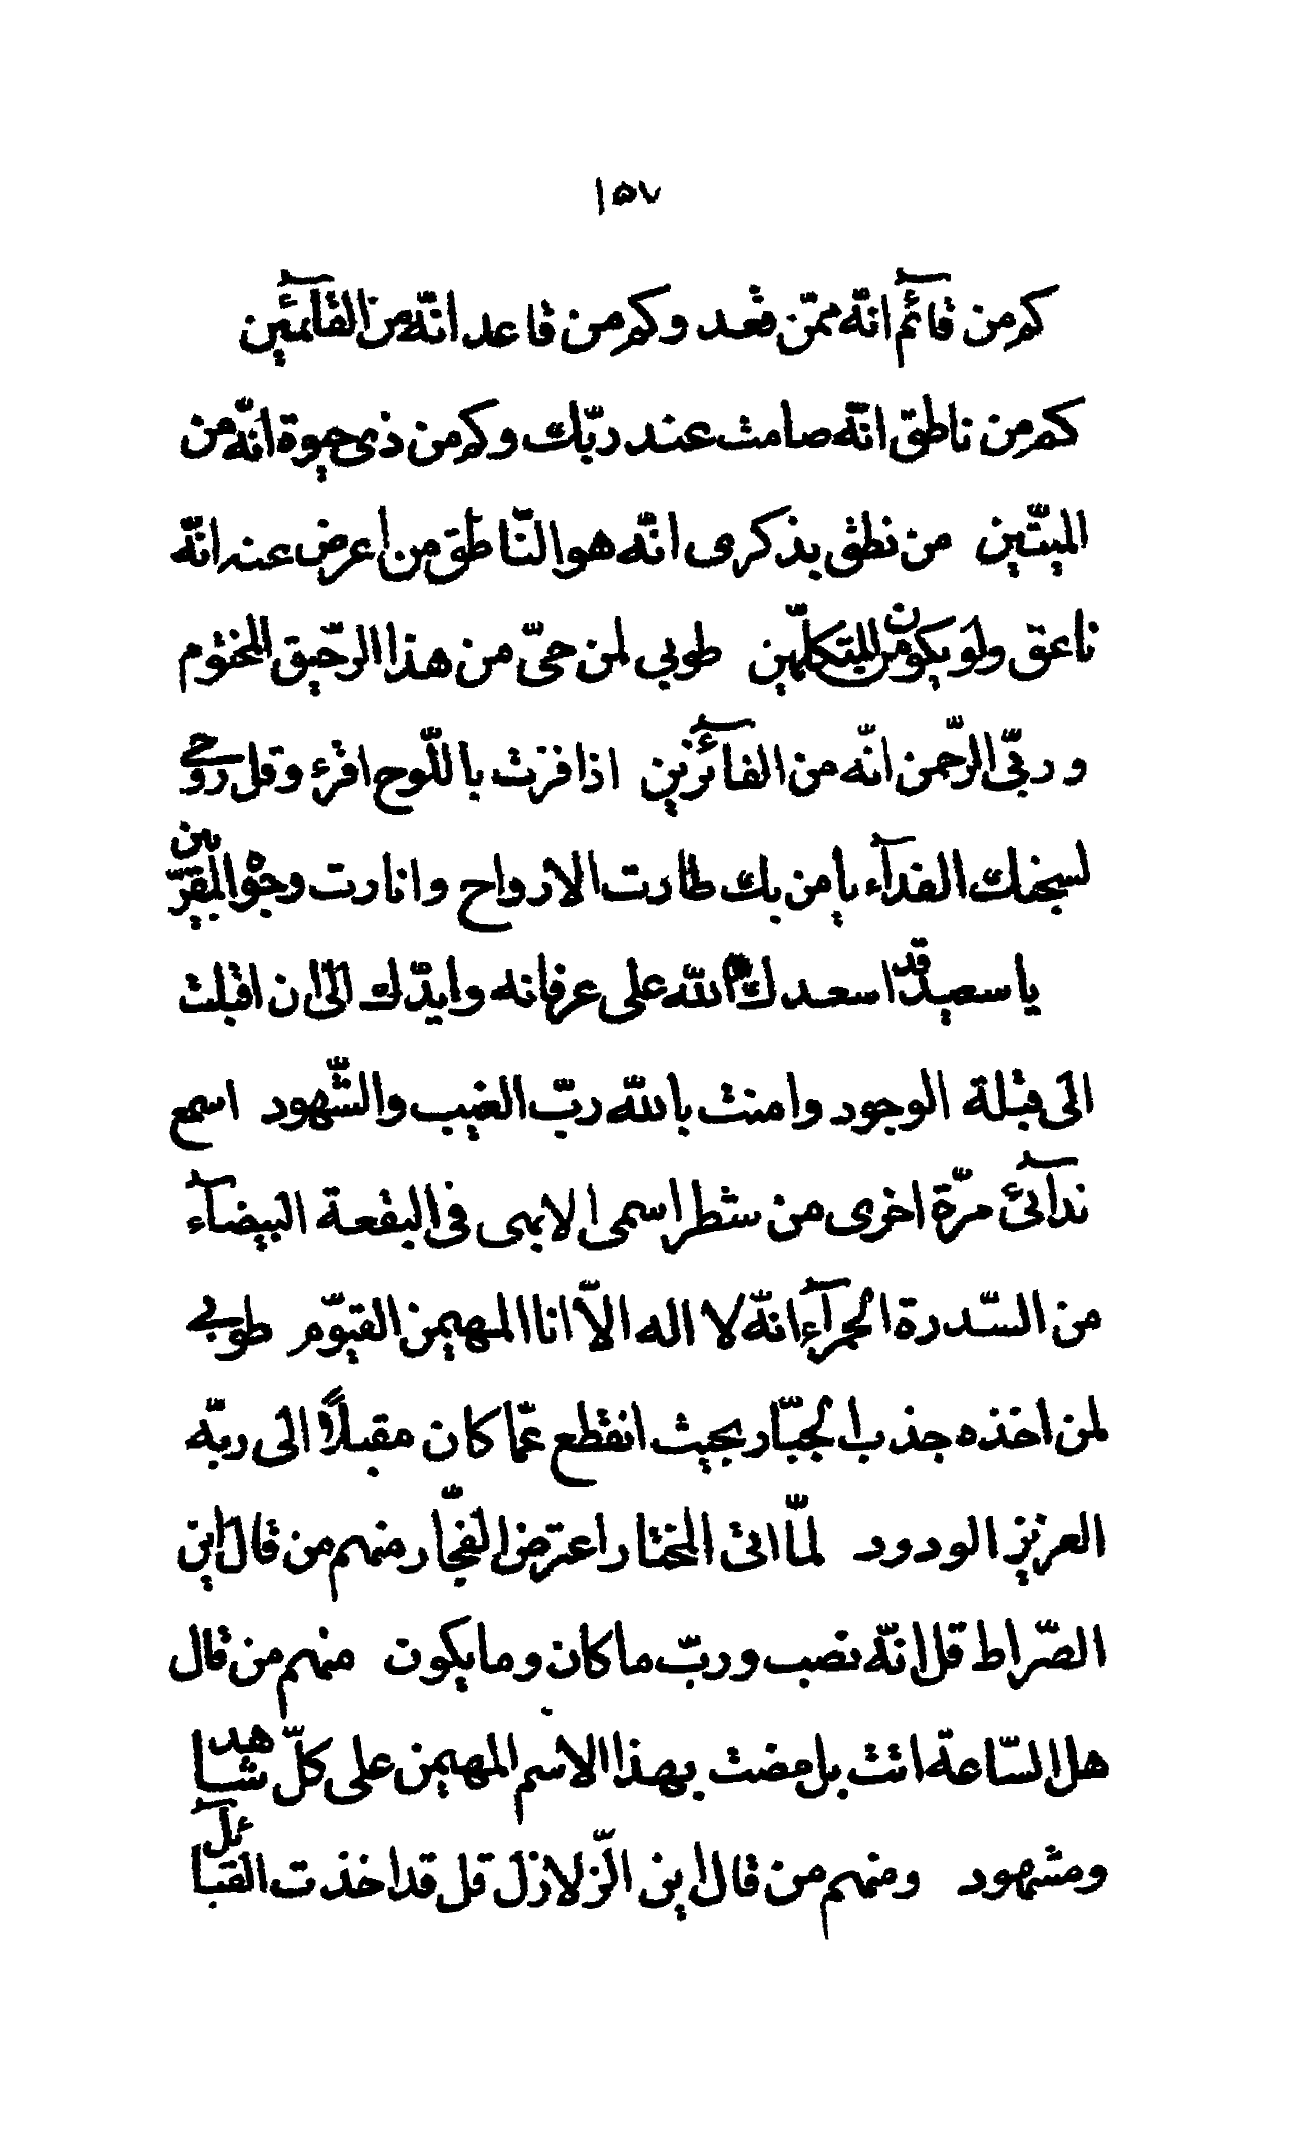 ١٥٧
كم من قآئم انّه ممّن قعد وكم من قاعد انّه من القآئمين
كم من ناطق انّه صامت عند ربّك وكم من ذى حيوة انّه من
الميّتين من نطق بذكرى انّه هو النّاطق من اعرض عنه انّه
ناعق ولو يكون من المتكلّمين طوبى لمن حىّ من هذا الرّحيق المختوم
و ربّى الرّحمن انّه من الفآئزين اذا فزت باللّوح اقرء وقل روحى
لسجنك الفدآء يا من بك طارت الارواح وانارت وجوه المقرّبين
يا سعيد قد اسعدك اللّه على عرفانه وايّدك الى ان اقبلت
الى قبلة الوجود وامنت باللّه ربّ الغيب والشّهود اسمع
ندآئى مرّة اخرى من شطر اسمى الابهى فى البقعة البيضآء
من السّدرة الحمرآء انّه لا اله الّا انا المهيمن القيّوم طوبى
لمن اخذه جذب الجبّار بحيث انقطع عمّا كان مقبلاً الى ربّه
العزيز الودود لمّا اتى المختار اعترض الفجّار منهم من قال اين
الصّراط قل انّه نصب و ربّ ما كان وما يكون منهم من قال
هل السّاعة اتت بل مضت بهذا الاسم المهيمن على كلّ شاهد
ومشهود ومنهم من قال اين الزّلازل قل قد اخذت القبآئل